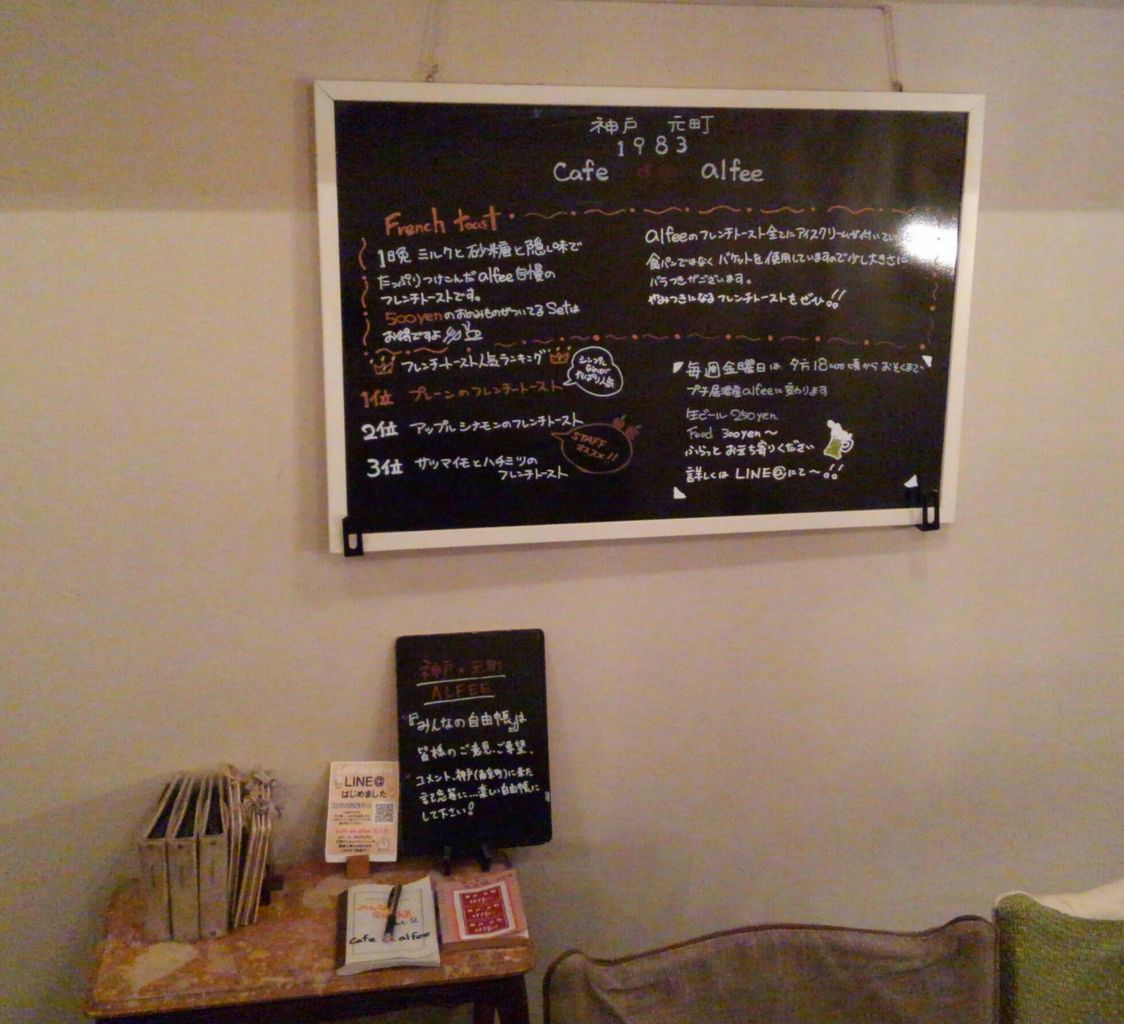 神戸 元町
1983
Cafe de alfee
French toast
1日晩 ミルクと砂糖と隠し味で
たっぷりつけこんだalfee自慢の
フレンチトーストです。
500yenのおのみものがついてるSetは
お得ですよ
alfeeのフレンチトースト全てにアイスクリームが付いてい
食パンではなく バケットを使用していますので少し大きさに
バラつきがございます。
やみつきになるフレンチトーストをぜひ!!
フレンチトースト人気ランキング
1位 プレーンのフレンチトースト
シンプル
なのが
やっぱり人気
2位 アップルシナモンのフレンチトースト
STAFF
オススメ!!
3位 サツマイモとハチミツの
フレンチトースト
毎週金曜日は 夕方18:00頃からおそくまで
プチ居酒屋alfeeに変わります
生ビール 250yen
Food 300yen〜
ふらっと お立ち寄りください
詳しくは LINE@にて〜!!
神戸・元町
ALFEE
『みんなの自由帳』は
皆様のご意見、ご要望、
コメント、神戸(南京町)に来た
記念等に...楽しい自由帳に
して下さい!
LINE@
はじめました
Cafe de alfee
みんなの
自由帳
Vol.2
Cafe de alfee